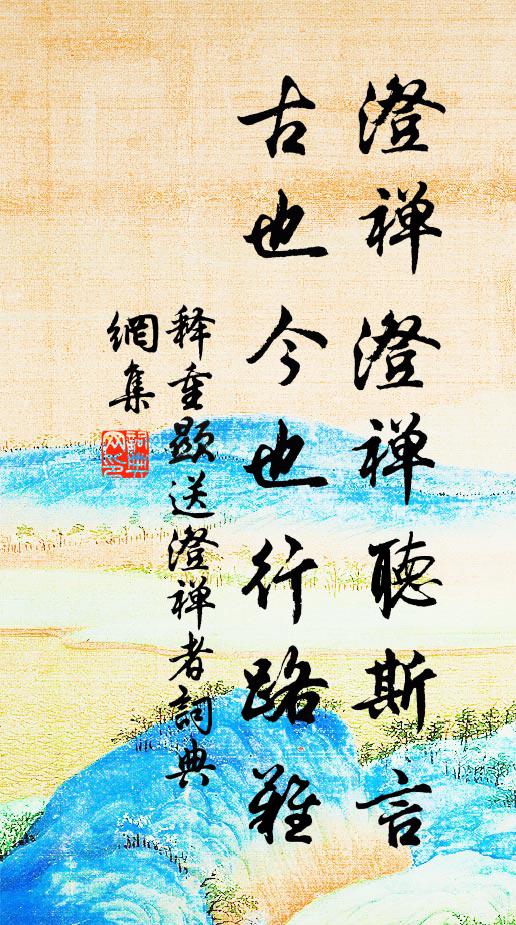 澄禅澄禅聽斯言
古也今也行路難
释重顯送澄禅者詞典
網集